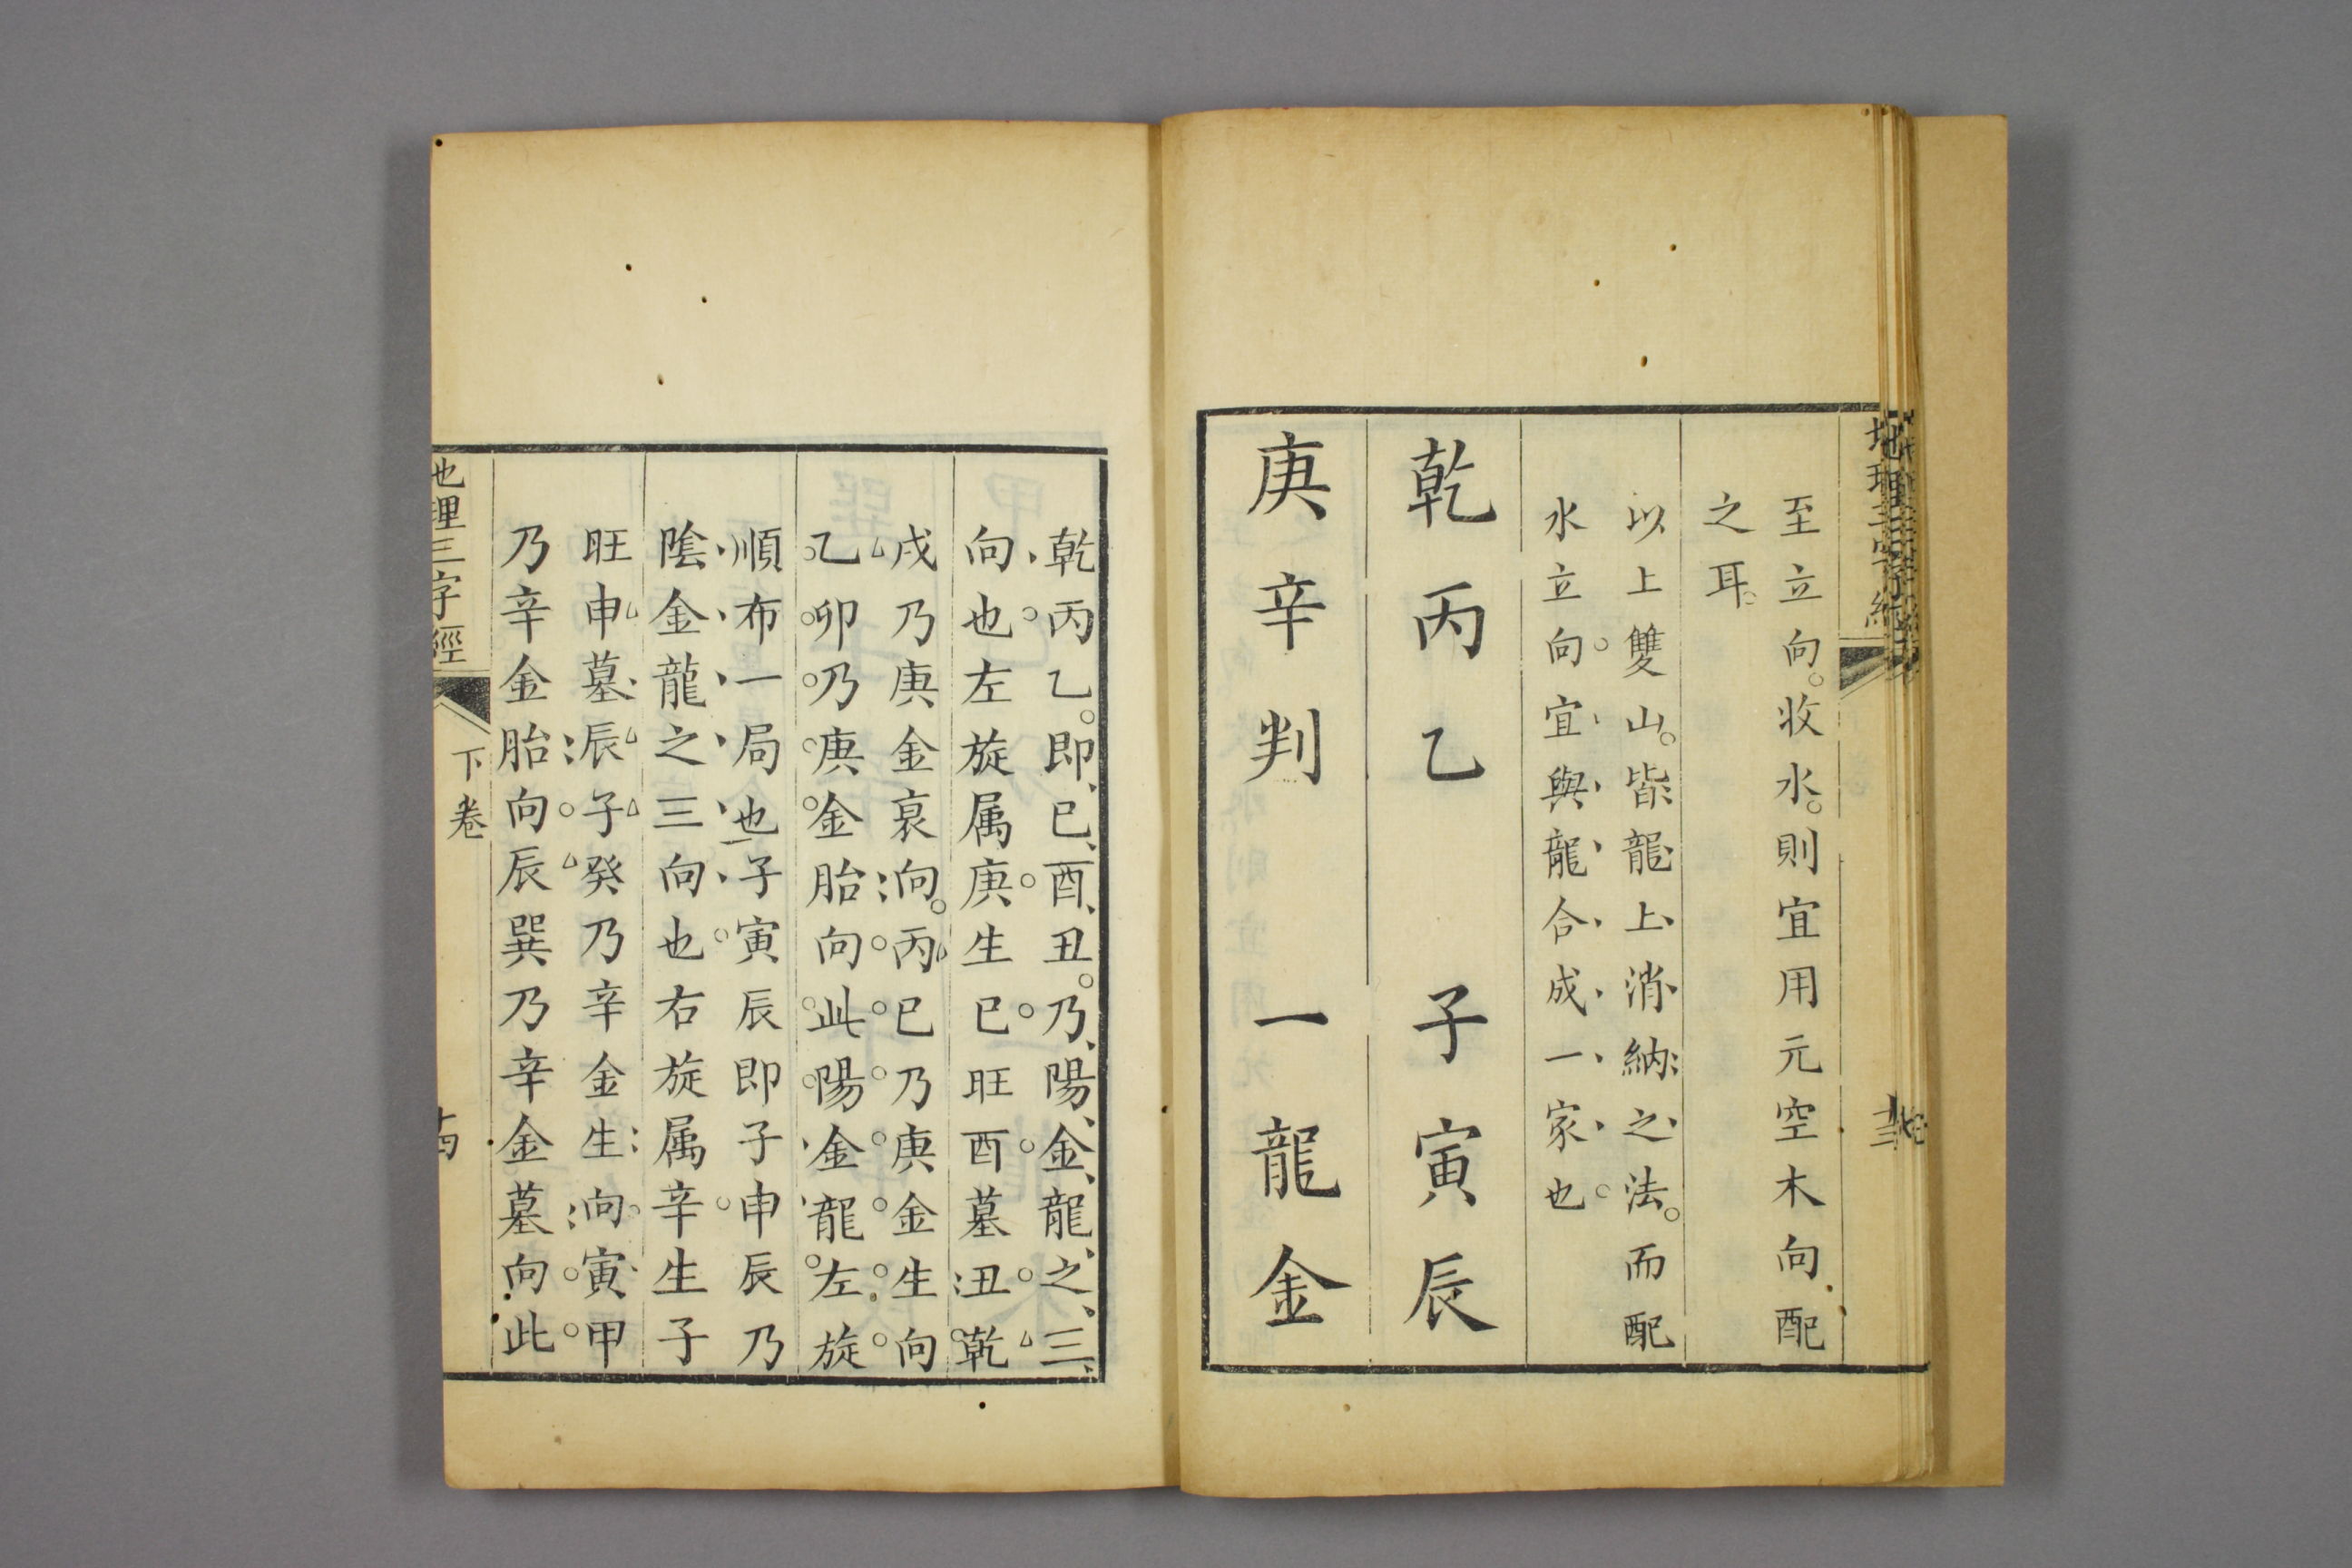 至立向。收水。則宜用元空木向配
之耳。
以上雙山。皆龍上消納之法。而配
水立向宜與龍合成一家也
乾丙乙　子寅辰
庚辛判　一龍金
乾丙乙。即巳酉丑。乃陽金龍之三
向也左旋属庚生巳旺酉墓丑乾
戌乃庚金衰向。丙巳乃庚金生向
乙卯乃庚金胎向此陽金龍左旋
順布一局也子寅辰即子申辰乃
陰金龍之三向也右旋属辛生子
旺申墓辰子癸乃辛金生向寅甲
乃辛金胎向辰巽乃辛金墓向此
地理三字經
下卷
十四